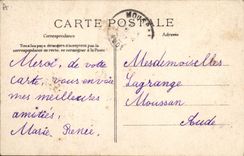 CARTE POSTALE
Correspondance
Adresse
Tous les pays étrangers n'acceptent pas
la correspondance
Merci, de votre
carte, vous envoie
mes meilleures
amitiés,
Marie Renée
Mesdemoiselles
Lagrange
Moussan
Aude